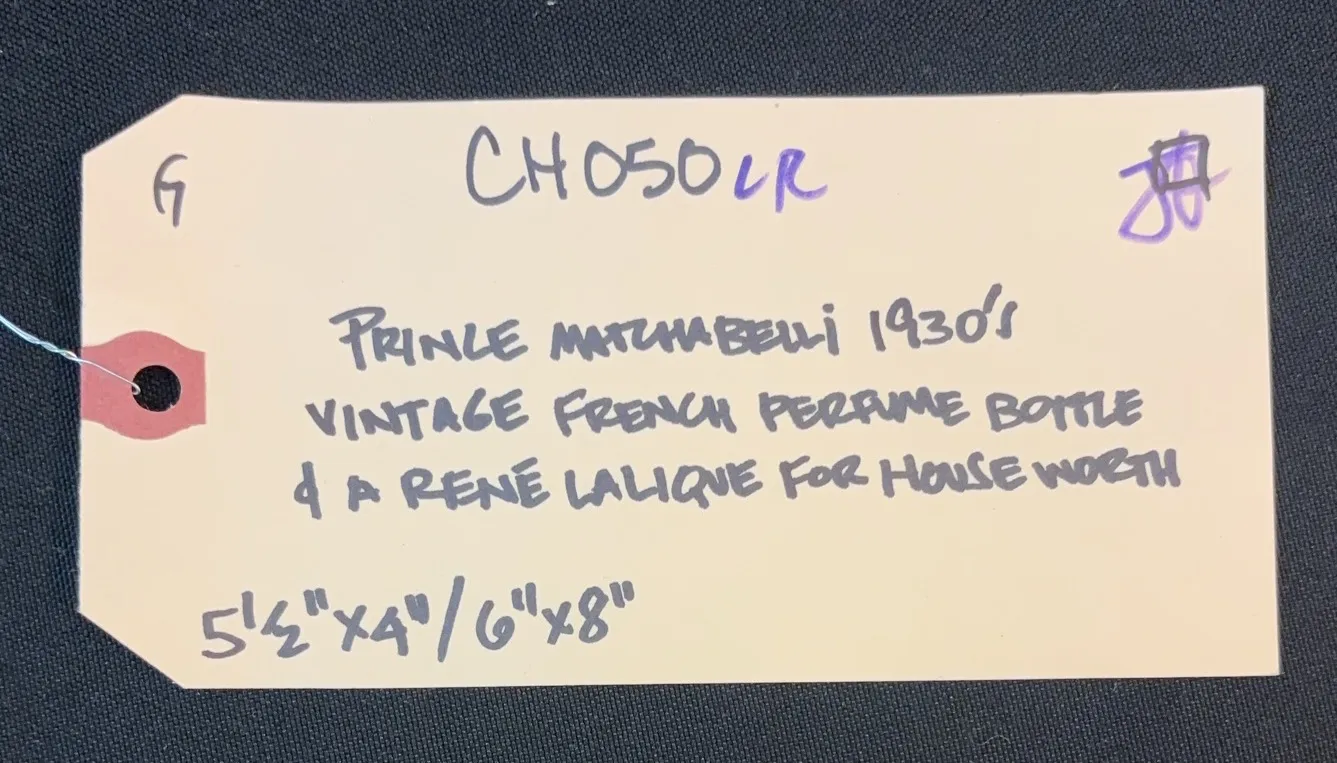 G CH050 LR
PRINCE MATCHABELLI 1930's
VINTAGE FRENCH PERFUME BOTTLE
& A RENÉ LALIQUE FOR HOUSE WORTH
5 1/2" x 4" / 6" x 8"